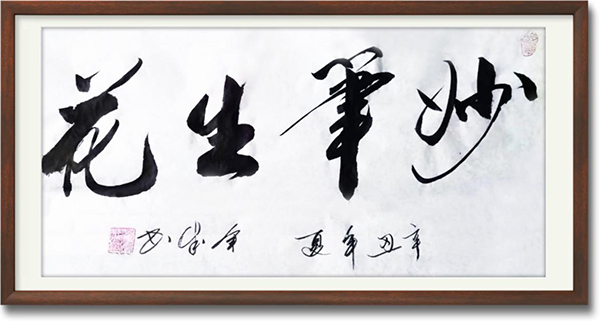 妙筆生花
辛丑年夏 书